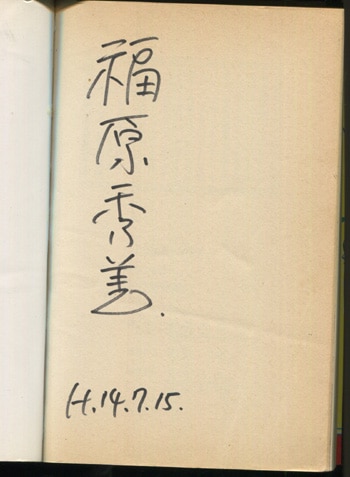 福原秀美.
H.14.7.15.